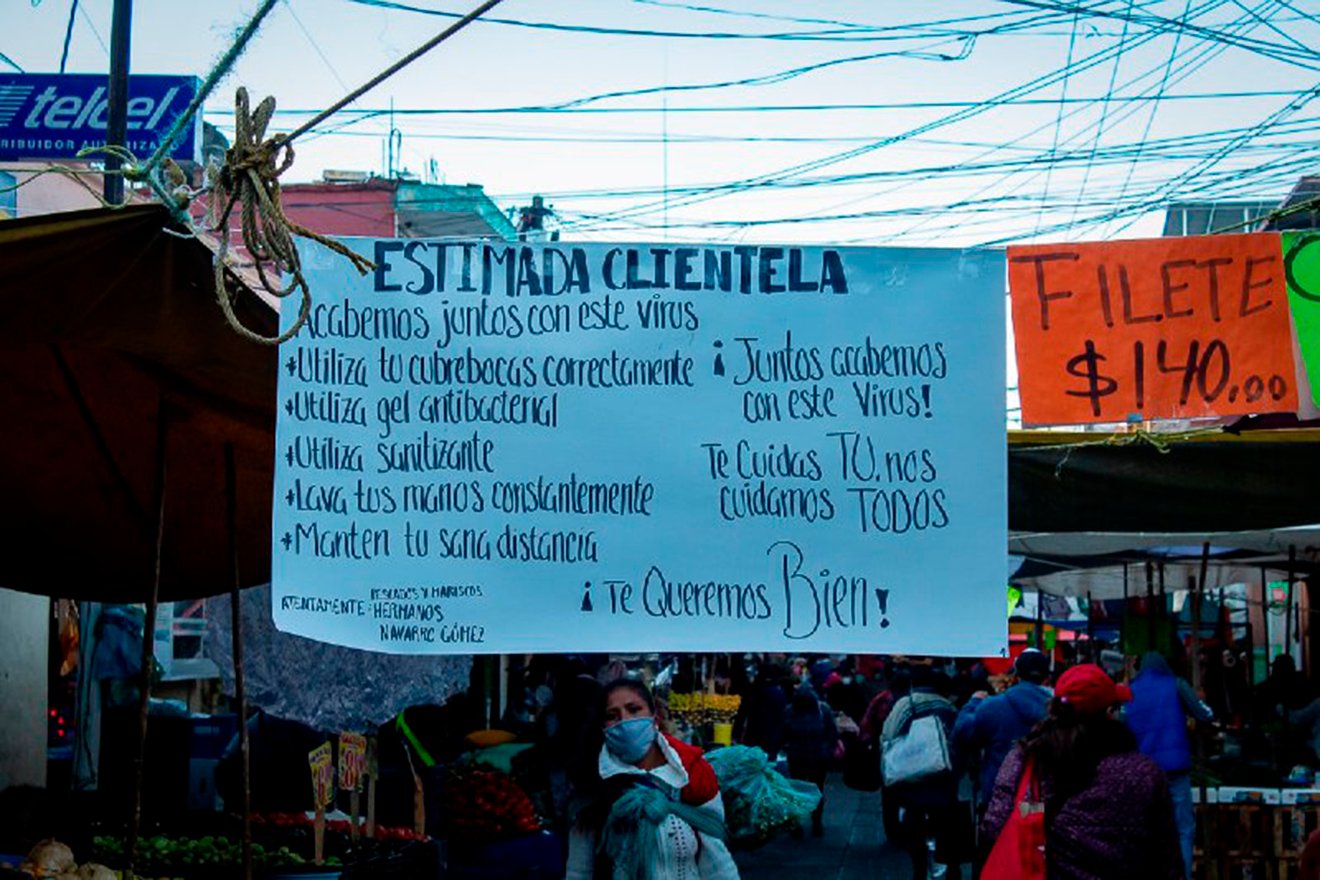 telcel
RIBUIDOR AUTORIZADO
ESTIMADA CLIENTELA
Acabemos juntos con este virus
*Utiliza tu cubrebocas correctamente
*Utiliza gel antibacterial
*Utiliza sanitizante
*Lava tus manos constantemente
*Manten tu sana distancia
ATENTAMENTE: PESCADOS Y MARISCOS
HERMANOS
NAVARRO GÓMEZ
¡Juntos acabemos
con este Virus!
Te Cuidas TU. nos
cuidamos TODOS
¡Te Queremos Bien!
FILETE
$140.00